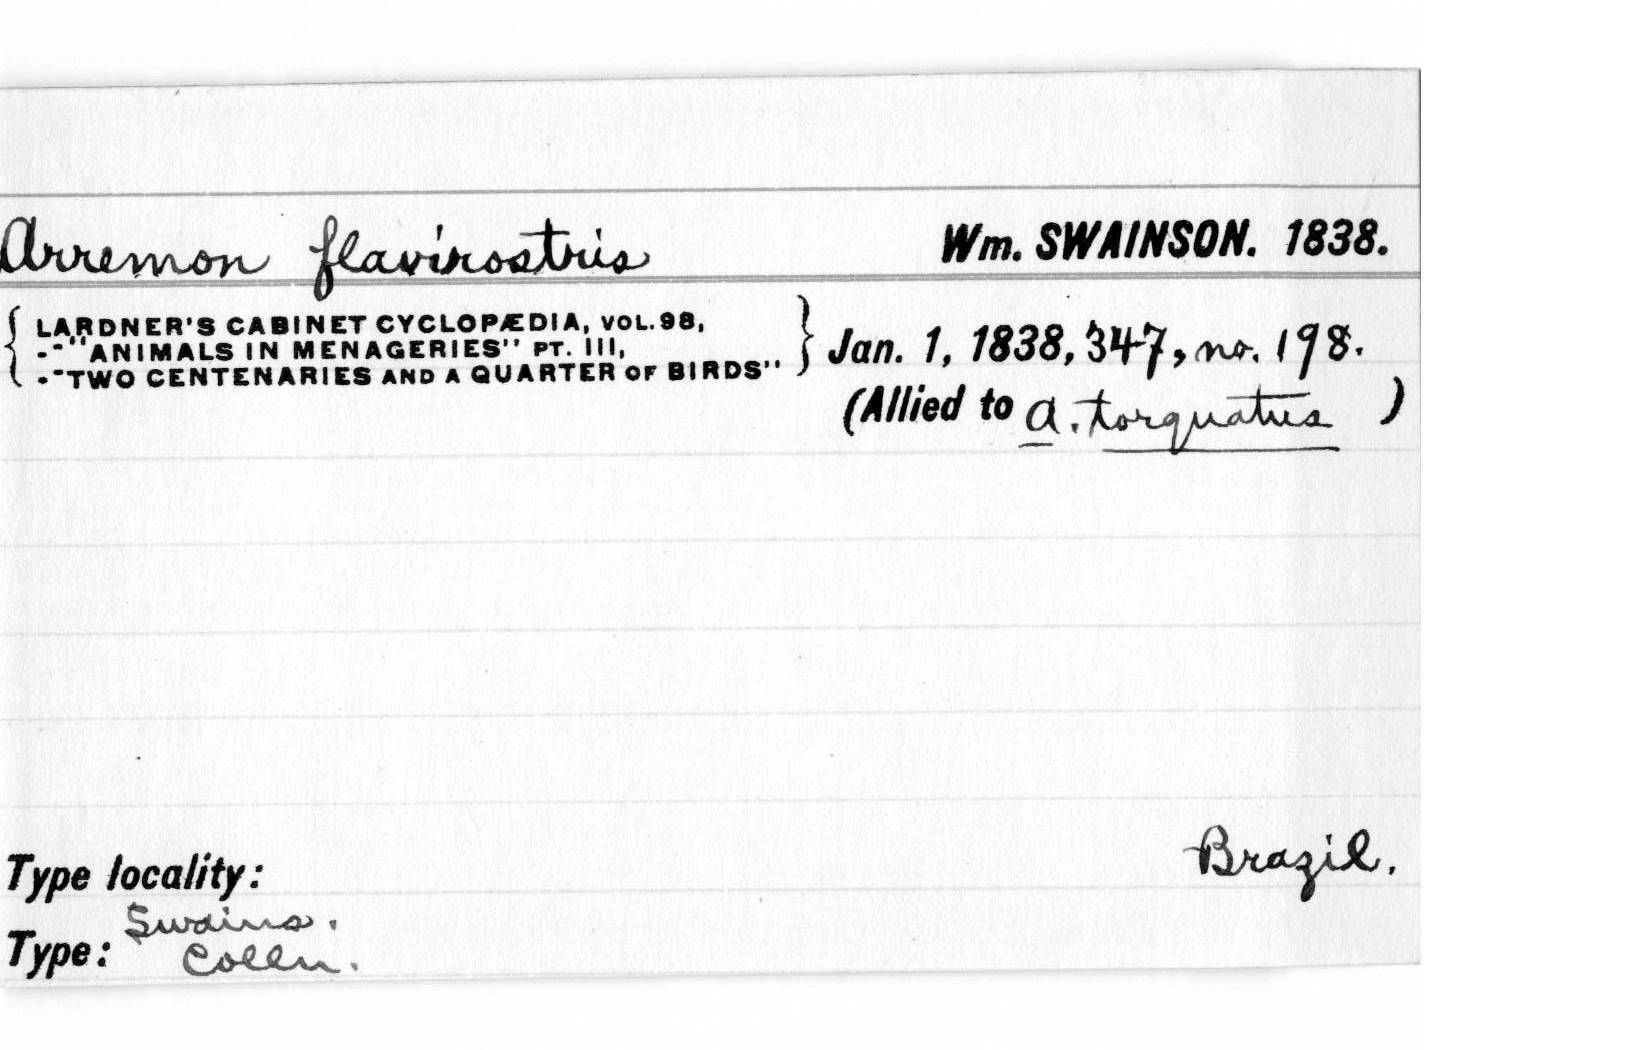 Arremon flavirostris Wm. SWAINSON. 1838.
LARDNER'S CABINET CYCLOPÆDIA, VOL. 98,
--"ANIMALS IN MENAGERIES" PT. III,
--"TWO CENTENARIES AND A QUARTER OF BIRDS"
Jan. 1, 1838, 347, no. 198.
(Allied to A. torquatus )
Brazil.
Type locality:
Swains.
Type: Colln.